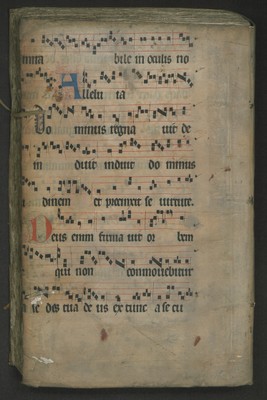 bile in oculis no
Allelu ia
Do minus regna uit de
in duit induit do minus
et precinxit se uirtute.
Deus enim firma uit or bem
qui non commouebitur
des tua de us ex tunc a se cu